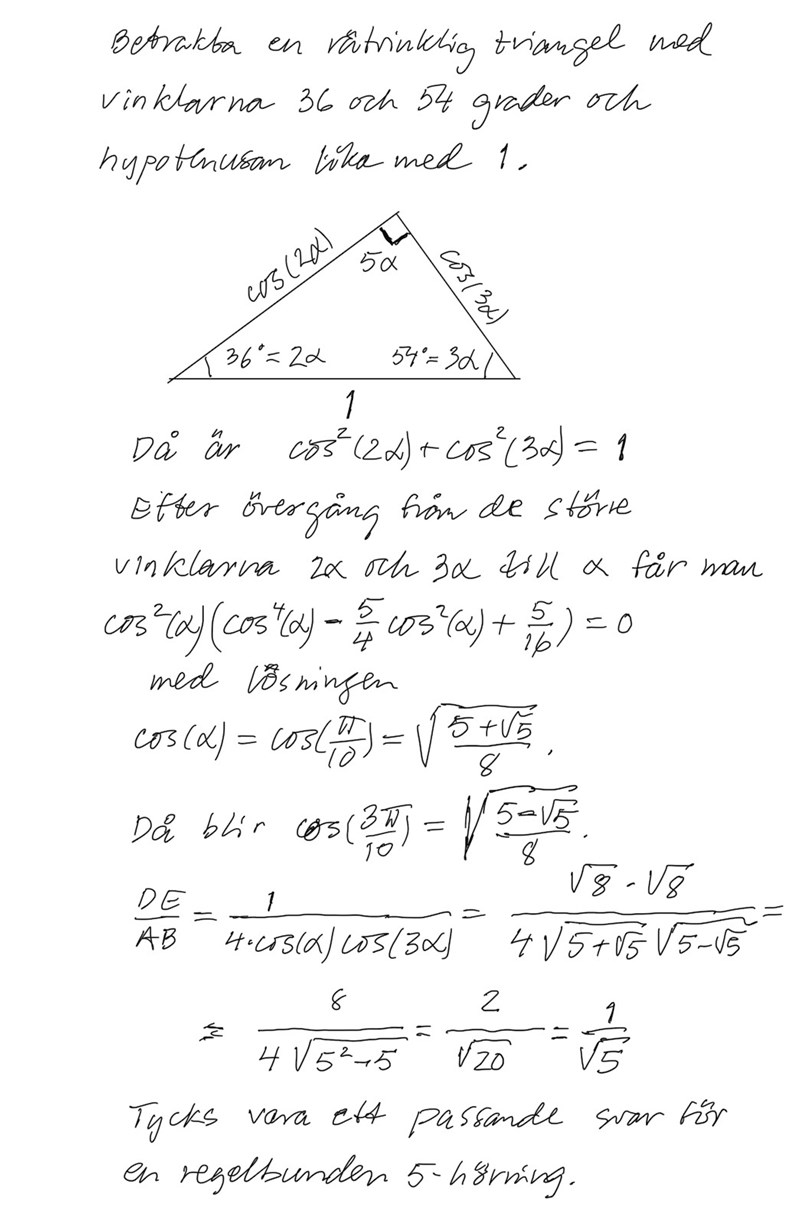 Betrakta en rätvinklig triangel med
vinklarna 36 och 54 grader och
hypotenusan lika med 1.
cos(2α)
cos(3α)
5α
36° = 2α
54° = 3α
1
Då är cos²(2α) + cos²(3α) = 1
Efter övergång från de större
vinklarna 2α och 3α till α får man
cos²(α)(cos⁴(α) - 5/4 cos²(α) + 5/16) = 0
med lösningen
cos(α) = cos(π/10) = √((5+√5)/8).
Då blir cos(3π/10) = √((5-√5)/8).
DE/AB = 1/(4·cos(α)cos(3α)) = (√8·√8)/(4√(5+√5)√(5-√5)) =
= 8/(4√(5²-5)) = 2/√20 = 1/√5
Tycks vara ett passande svar för
en regelbunden 5-hörning.